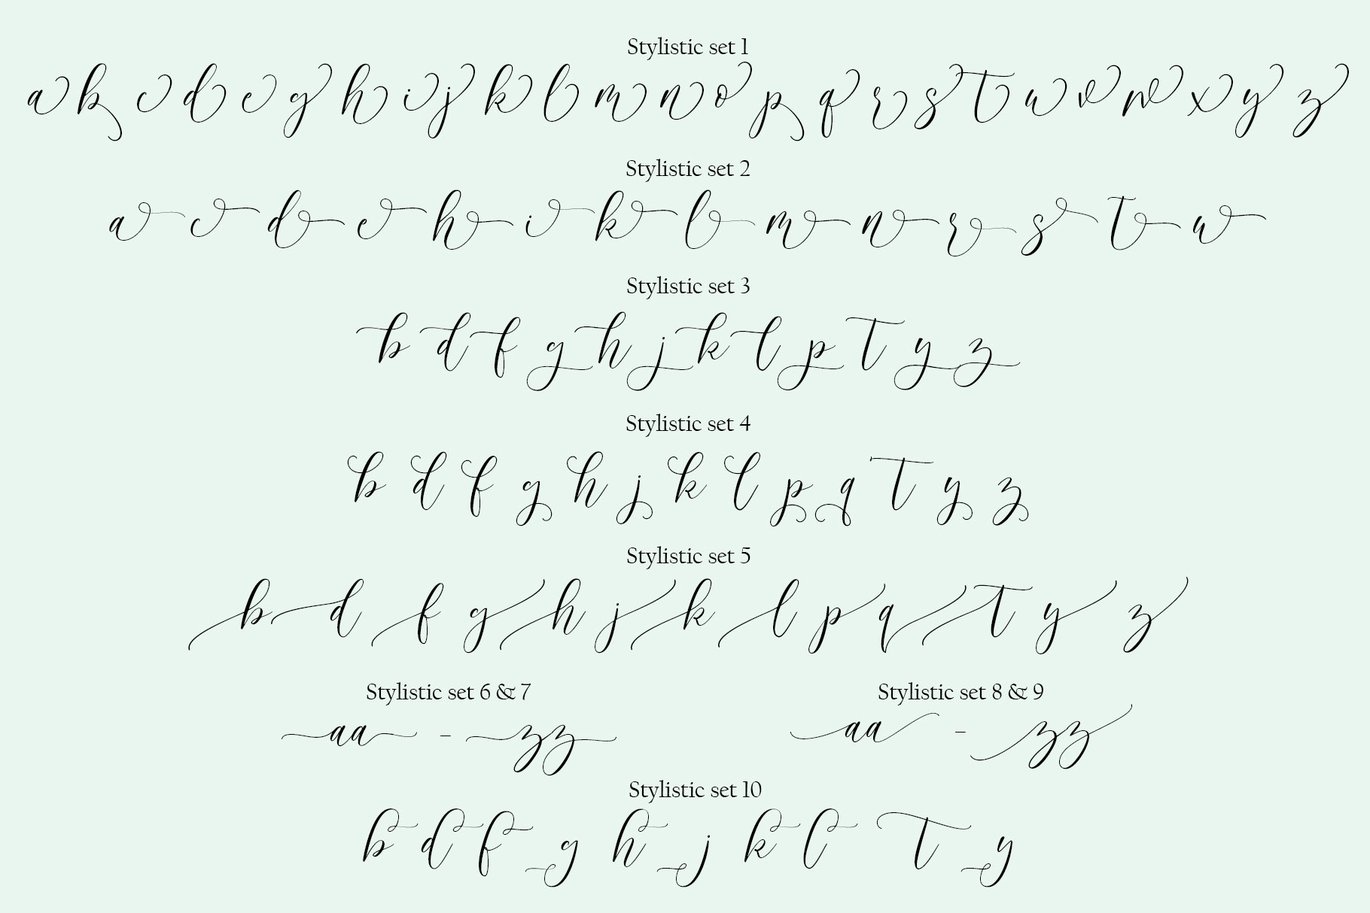 Stylistic set 1
a b c d e g h i j k l m n o p q r s t u v w x y z
Stylistic set 2
a c d e h i k l m n r s t u
Stylistic set 3
b d f g h j k l p t y z
Stylistic set 4
b d f g h j k l p q t y z
Stylistic set 5
b d f g h j k l p q t y z
Stylistic set 6 & 7
aa - zz
Stylistic set 8 & 9
aa - zz
Stylistic set 10
b d f g h j k l t y